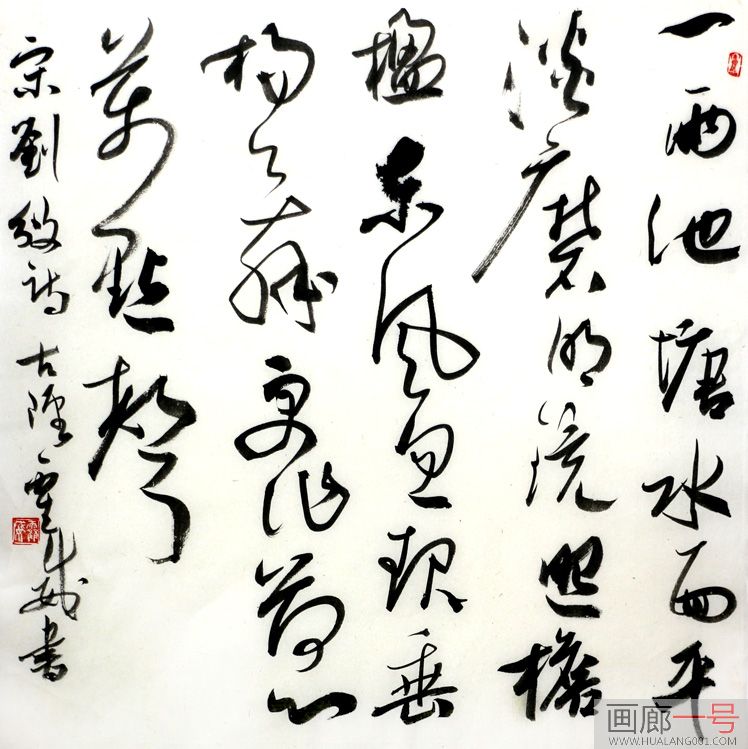 一雨池塘水面平
淡磨明镜照檐
楹东风忽起垂
杨舞更作荷心
萬點聲
宋劉攽詩 書
画廊一号
WWW.HUALANG001.COM